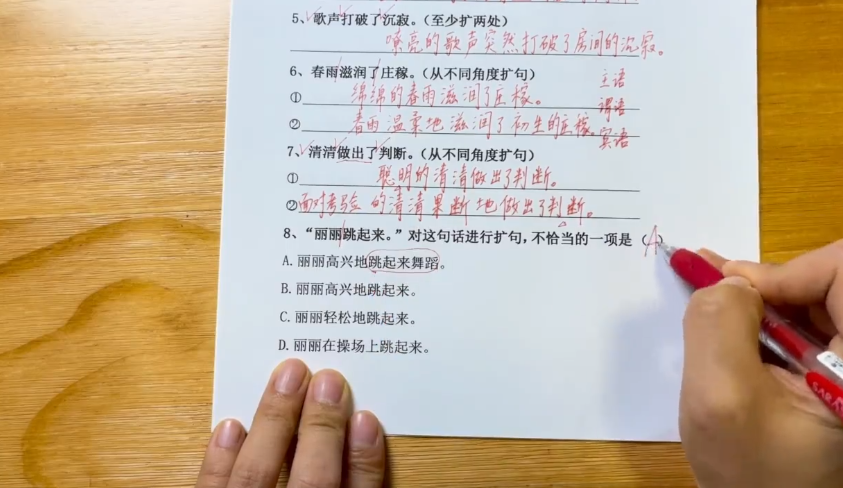 5、歌声打破了沉寂。(至少扩两处)
嘹亮的歌声突然打破了房间的沉寂。
6、春雨滋润了庄稼。(从不同角度扩句)
主语
①绵绵的春雨滋润了庄稼。
谓语
②春雨温柔地滋润了初生的庄稼。
宾语
7、清清做出了判断。(从不同角度扩句)
①聪明的清清做出了判断。
②面对考验的清清果断地做出了判断。
8、“丽丽跳起来。”对这句话进行扩句,不恰当的一项是(A)
A.丽丽高兴地跳起来舞蹈。
B.丽丽高兴地跳起来。
C.丽丽轻松地跳起来。
D.丽丽在操场上跳起来。